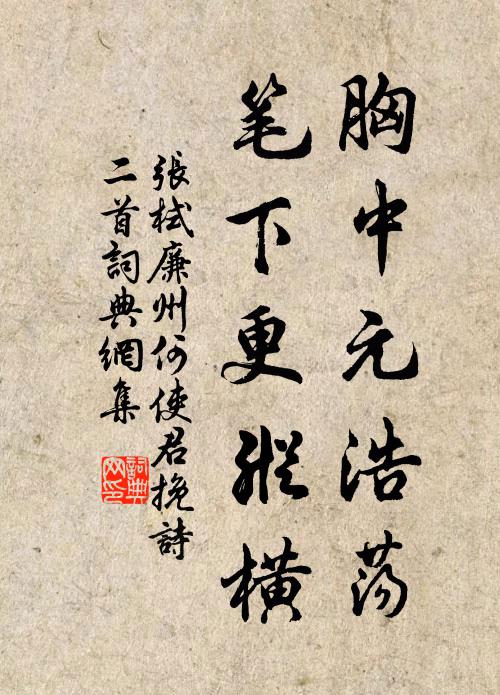 胸中元浩荡
笔下更縱橫
張栻廉州何使君挽詩
二首詞典網集
詞典
网印